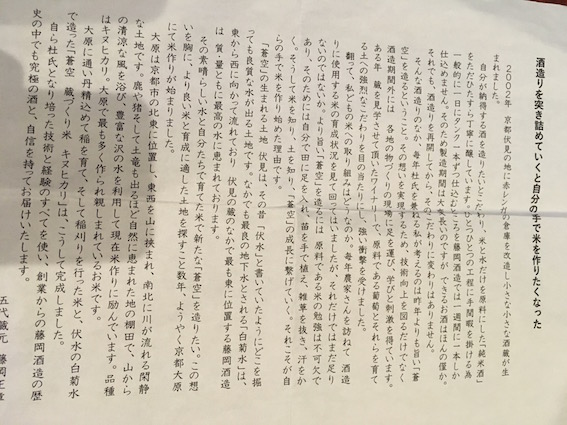 酒造りを突き詰めていくと自分の手で米を作りたくなった
2002年 京都伏見の地に赤レンガの倉庫を改造し小さな小さな酒蔵が生
まれました。
自分が納得する酒を造りたいとこだわり、米と水だけを原料にした「純米酒」
をただひたすら丁寧に醸しています。ひとつひとつの工程に手間暇を掛ける為
一般的に一日にタンク一本ずつ仕込むところを藤岡酒造では一週間に一本しか
仕込めません。そのため製造期間は大変長いのですが できるお酒はほんの僅か。
それでも、酒造りを再開してから、そのこだわりに変わりはありません。
そんな酒造りのなか、毎年杜氏を兼ねる私が考えるのは昨年よりも旨い「蒼
空」を造るということ。その想いを実現するため、技術向上を図るだけでなく
酒造期間外には、各地の物づくりの現場に足を運び、学びと刺激を得ています。
ある年、蔵を見学させて頂いたワイナリーで、原料である葡萄とそれらを育て
る土への強烈なこだわりを目の当たりにし、強い衝撃を受けました。
翻って、私どもの米への取り組みはどうなのか。毎年農家さんを訪ねて 酒造
りに使用する米の育成状況を見て回ってはいましたが、それだけではまだ足り
ないのではないか。より旨い「蒼空」を造るには、原料である米の勉強は不可欠で
あり、そのためには自分で田に足を入れ、苗を手で植え、雑草を抜き、汗をか
く。そうして米を知り、土を知り、「蒼空」の成長に繋げていく。それこそが自
らの手で米を作り始めた理由です。
「蒼空」の生まれる土地 伏見は、その昔「伏水」と書いていたようにどこを掘
っても良質な水が出る土地です。なかでも最良の地下水とされる「白菊水」は、
東から西に向かって流れており 伏見の蔵のなかで最も東に位置する藤岡酒造
は 質量ともに最高の水に恵まれております。
その素晴らしい水と自分たちで育てた米で新たな「蒼空」を造りたい。この想
いを胸に、より良い米の育成に適した土地を探すこと数年、ようやく京都大原
にて米作りが始まりました。
大原は京都市の北東に位置し、東西を山に挟まれ、南北に川が流れる閑静
な土地です。鹿や猪そして土竜も出るほど自然に恵まれた地の棚田で、山から
の清涼な風を浴び、豊富な沢の水を利用して現在米作りに励んでいます。品種
はキヌヒカリ。大原で最も多く作られ親しまれているお米です。
大原に通い丹精込めて稲を育て、そして稲刈りを行った米と、伏水の白菊水
で造った「蒼空 蔵づくり米 キヌヒカリ」は、こうして完成しました。
自ら杜氏となり培った技術と経験のすべてを使い、創業からの藤岡酒造の歴
史の中でも究極の酒と、自信を持ってお届けいたします。
五代蔵元 藤岡正章